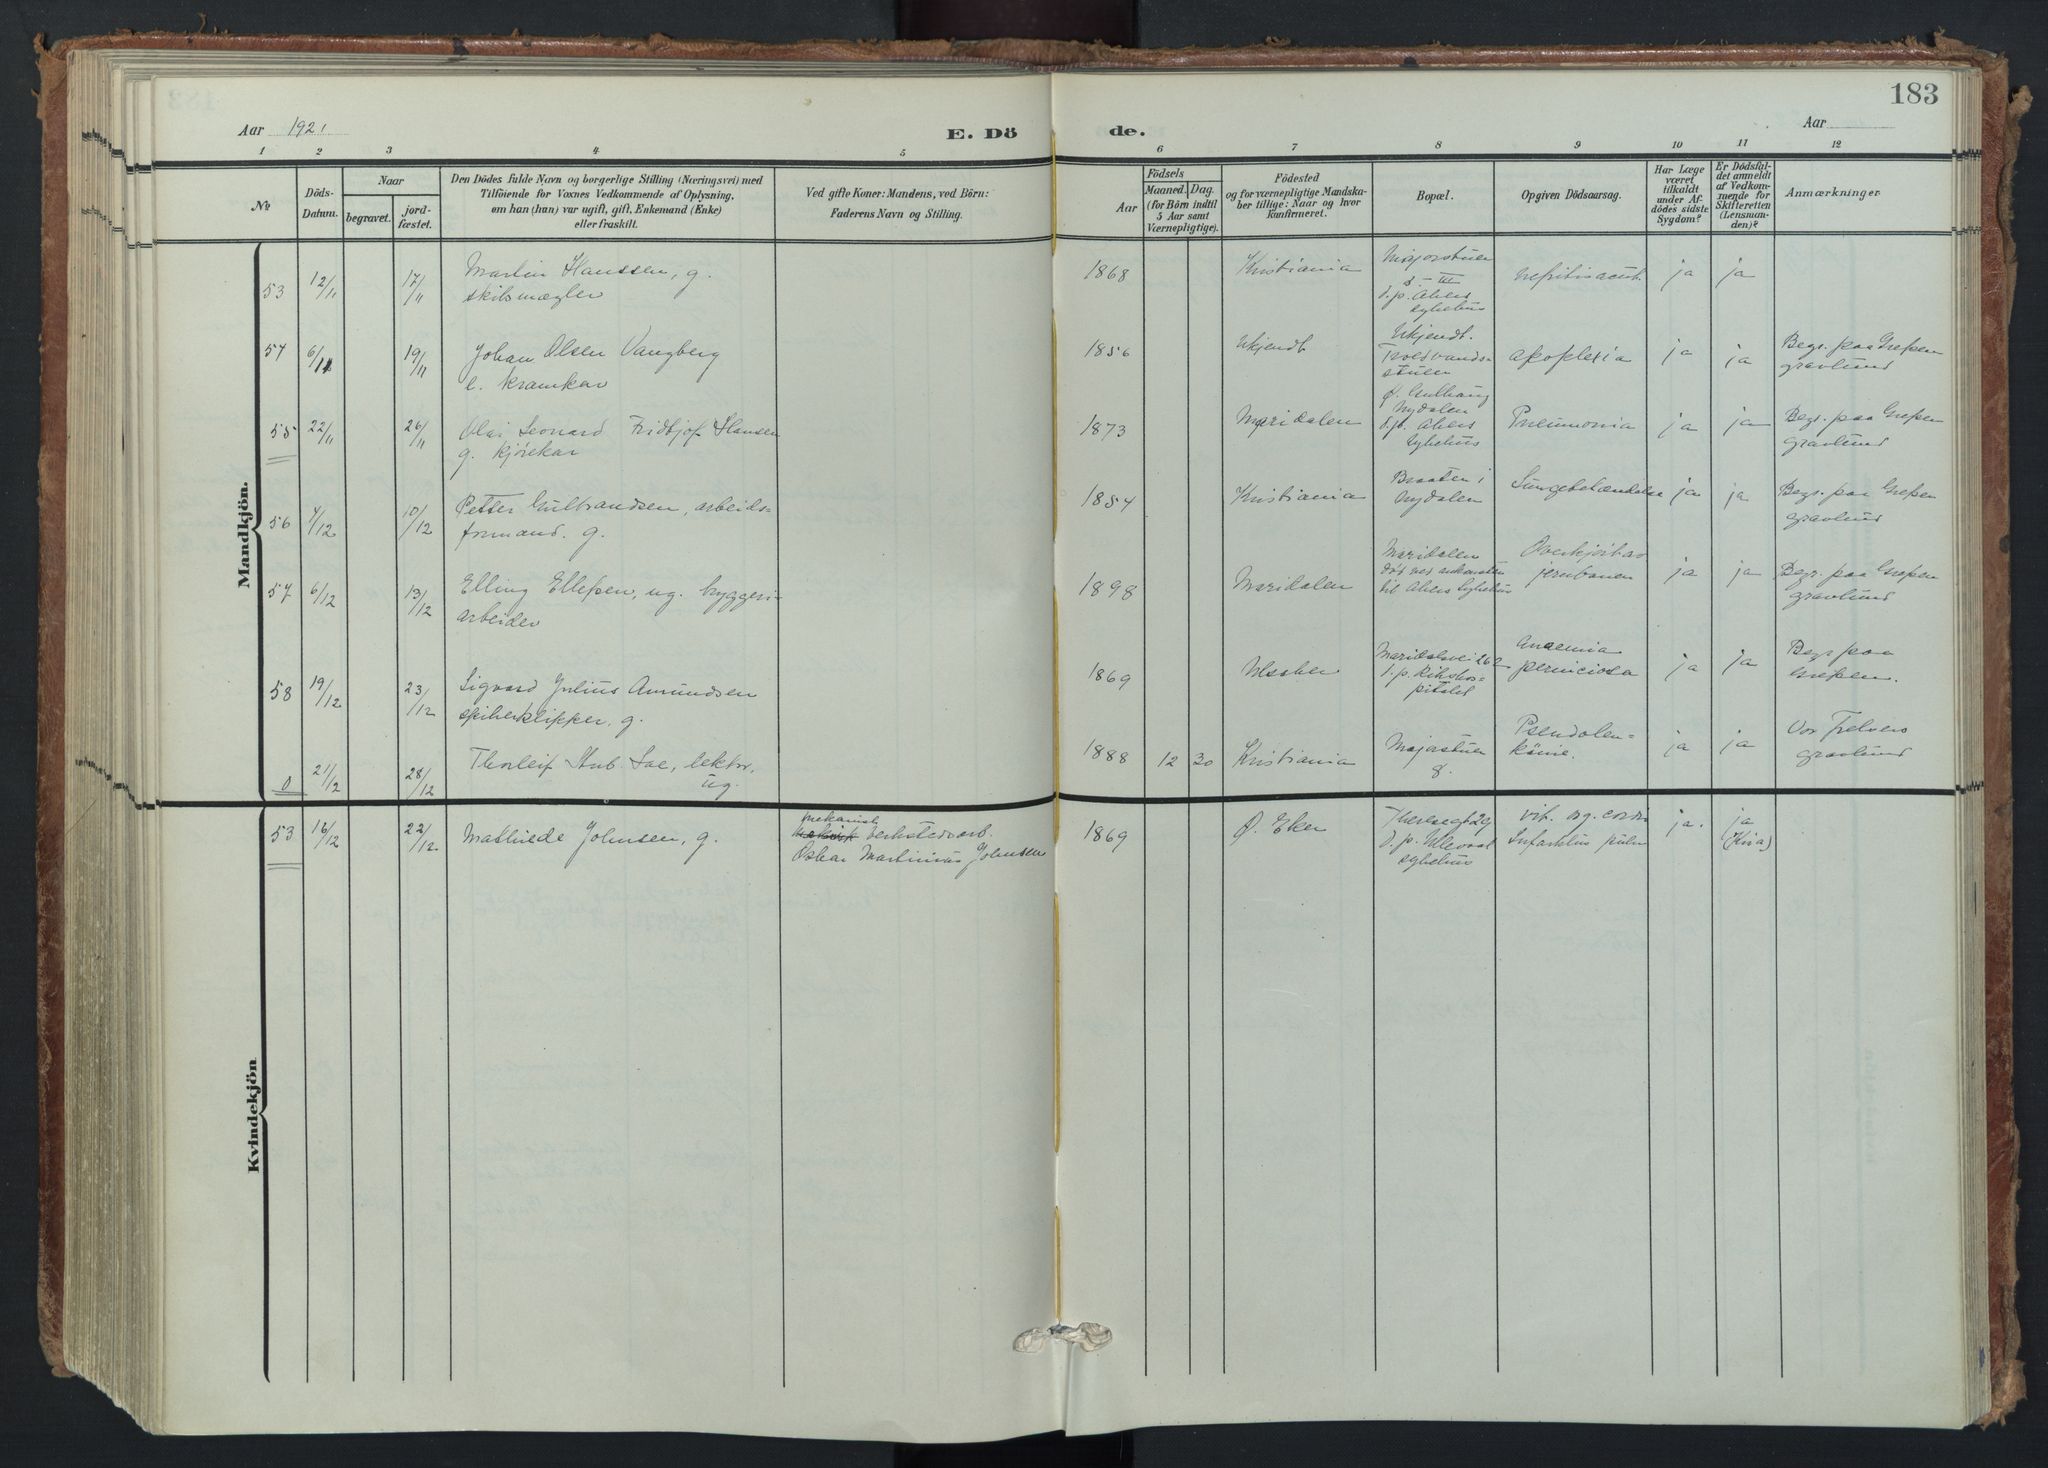 183
Aar 1921
E. Dö
de.
Aar
1 2 3 4 5 6 7 8 9 10 11 12
No
Döds-Datum.
Naar
begravet.
jord-fæstet.
Den Dödes fulde Navn og borgerlige Stilling (Næringsvei) med
Tilföiende for Voxnes Vedkommende af Oplysning,
om han (hun) var ugift, gift, Enkemand (Enke)
eller fraskilt.
Ved gifte Koner: Mandens, ved Börn:
Faderens Navn og Stilling.
Födsels
Aar
Maaned. Dag.
(for Börn indtil
5 Aar samt
Værnepligtige).
Födested
og for værnepligtige Mandska-
ber tillige: Naar og hvor
konfirmeret.
Bopæl.
Opgiven Dödsaarsag.
Har Læge
været
tilkaldt
under Af-
dödes sidste
Sygdom?
Er Dödsfal-
det anmeldt
af Vedkom-
mende for
Skifteretten
(Lensman-
den)?
Anmærkninger
Mandkjön.
53 12/11 17/11 Martin Hanssen, g.
skibsmægler
1868 Kristiania Majorstuen
d.p. Akers
sykehus
Nefritis acut. ja ja
54 6/11 19/11 Johan Olsen Vangberg
e. kramkar
1856 Ukjendt Ukjendt.
apoplexia ja ja Begr. paa Grefsen
gravlund
55 22/11 26/11 Olai Leonard Fridtjof Hansen
g. kjørekar
1873 Maridalen
Nydalen
d.p. Akers
sykehus
Pneumonia ja ja Begr. paa Grefsen
gravlund
56 7/12 10/12 Petter Gulbrandsen, arbeids-
formand. g.
1854 Kristiania Braaten i
Nydalen
Lungebetændelse ja ja Begr. paa Grefsen
gravlund
57 6/12 13/12 Elling Ellefsen, ug. bryggeri-
arbeider
1898 Maridalen Maridalen
død ved ankomsten
til Akers Sykehus
Overkjørt av
jernbanen
ja ja Begr. paa Grefsen
gravlund
58 19/12 23/12 Sigvard Julius Amundsen
spikerklipper, g.
1869 Maridalsvei 262
d.p. Rikshos-
pitalet
Anaemia
perniciosa
ja ja Begr paa
Grefsen.
0 21/12 28/12 Thorleif Stub. Soe, lektor,
ug.
1888 12 30 Kristiania Majorstuen
8.
Pseudoleu-
kämie.
ja ja Vor Frelsers
gravlund
Kvindekjön
53 16/12 22/12 Mathilde Johnsen, g.
mekanisk
verkstedsarb.
Oskar Martinius Johnsen
1869 Ø. Eker Theresegt 29
d.p. Ullevaal
sykehus
vit. org. cordis
Infarktus pulm
ja. ja
(Kria)